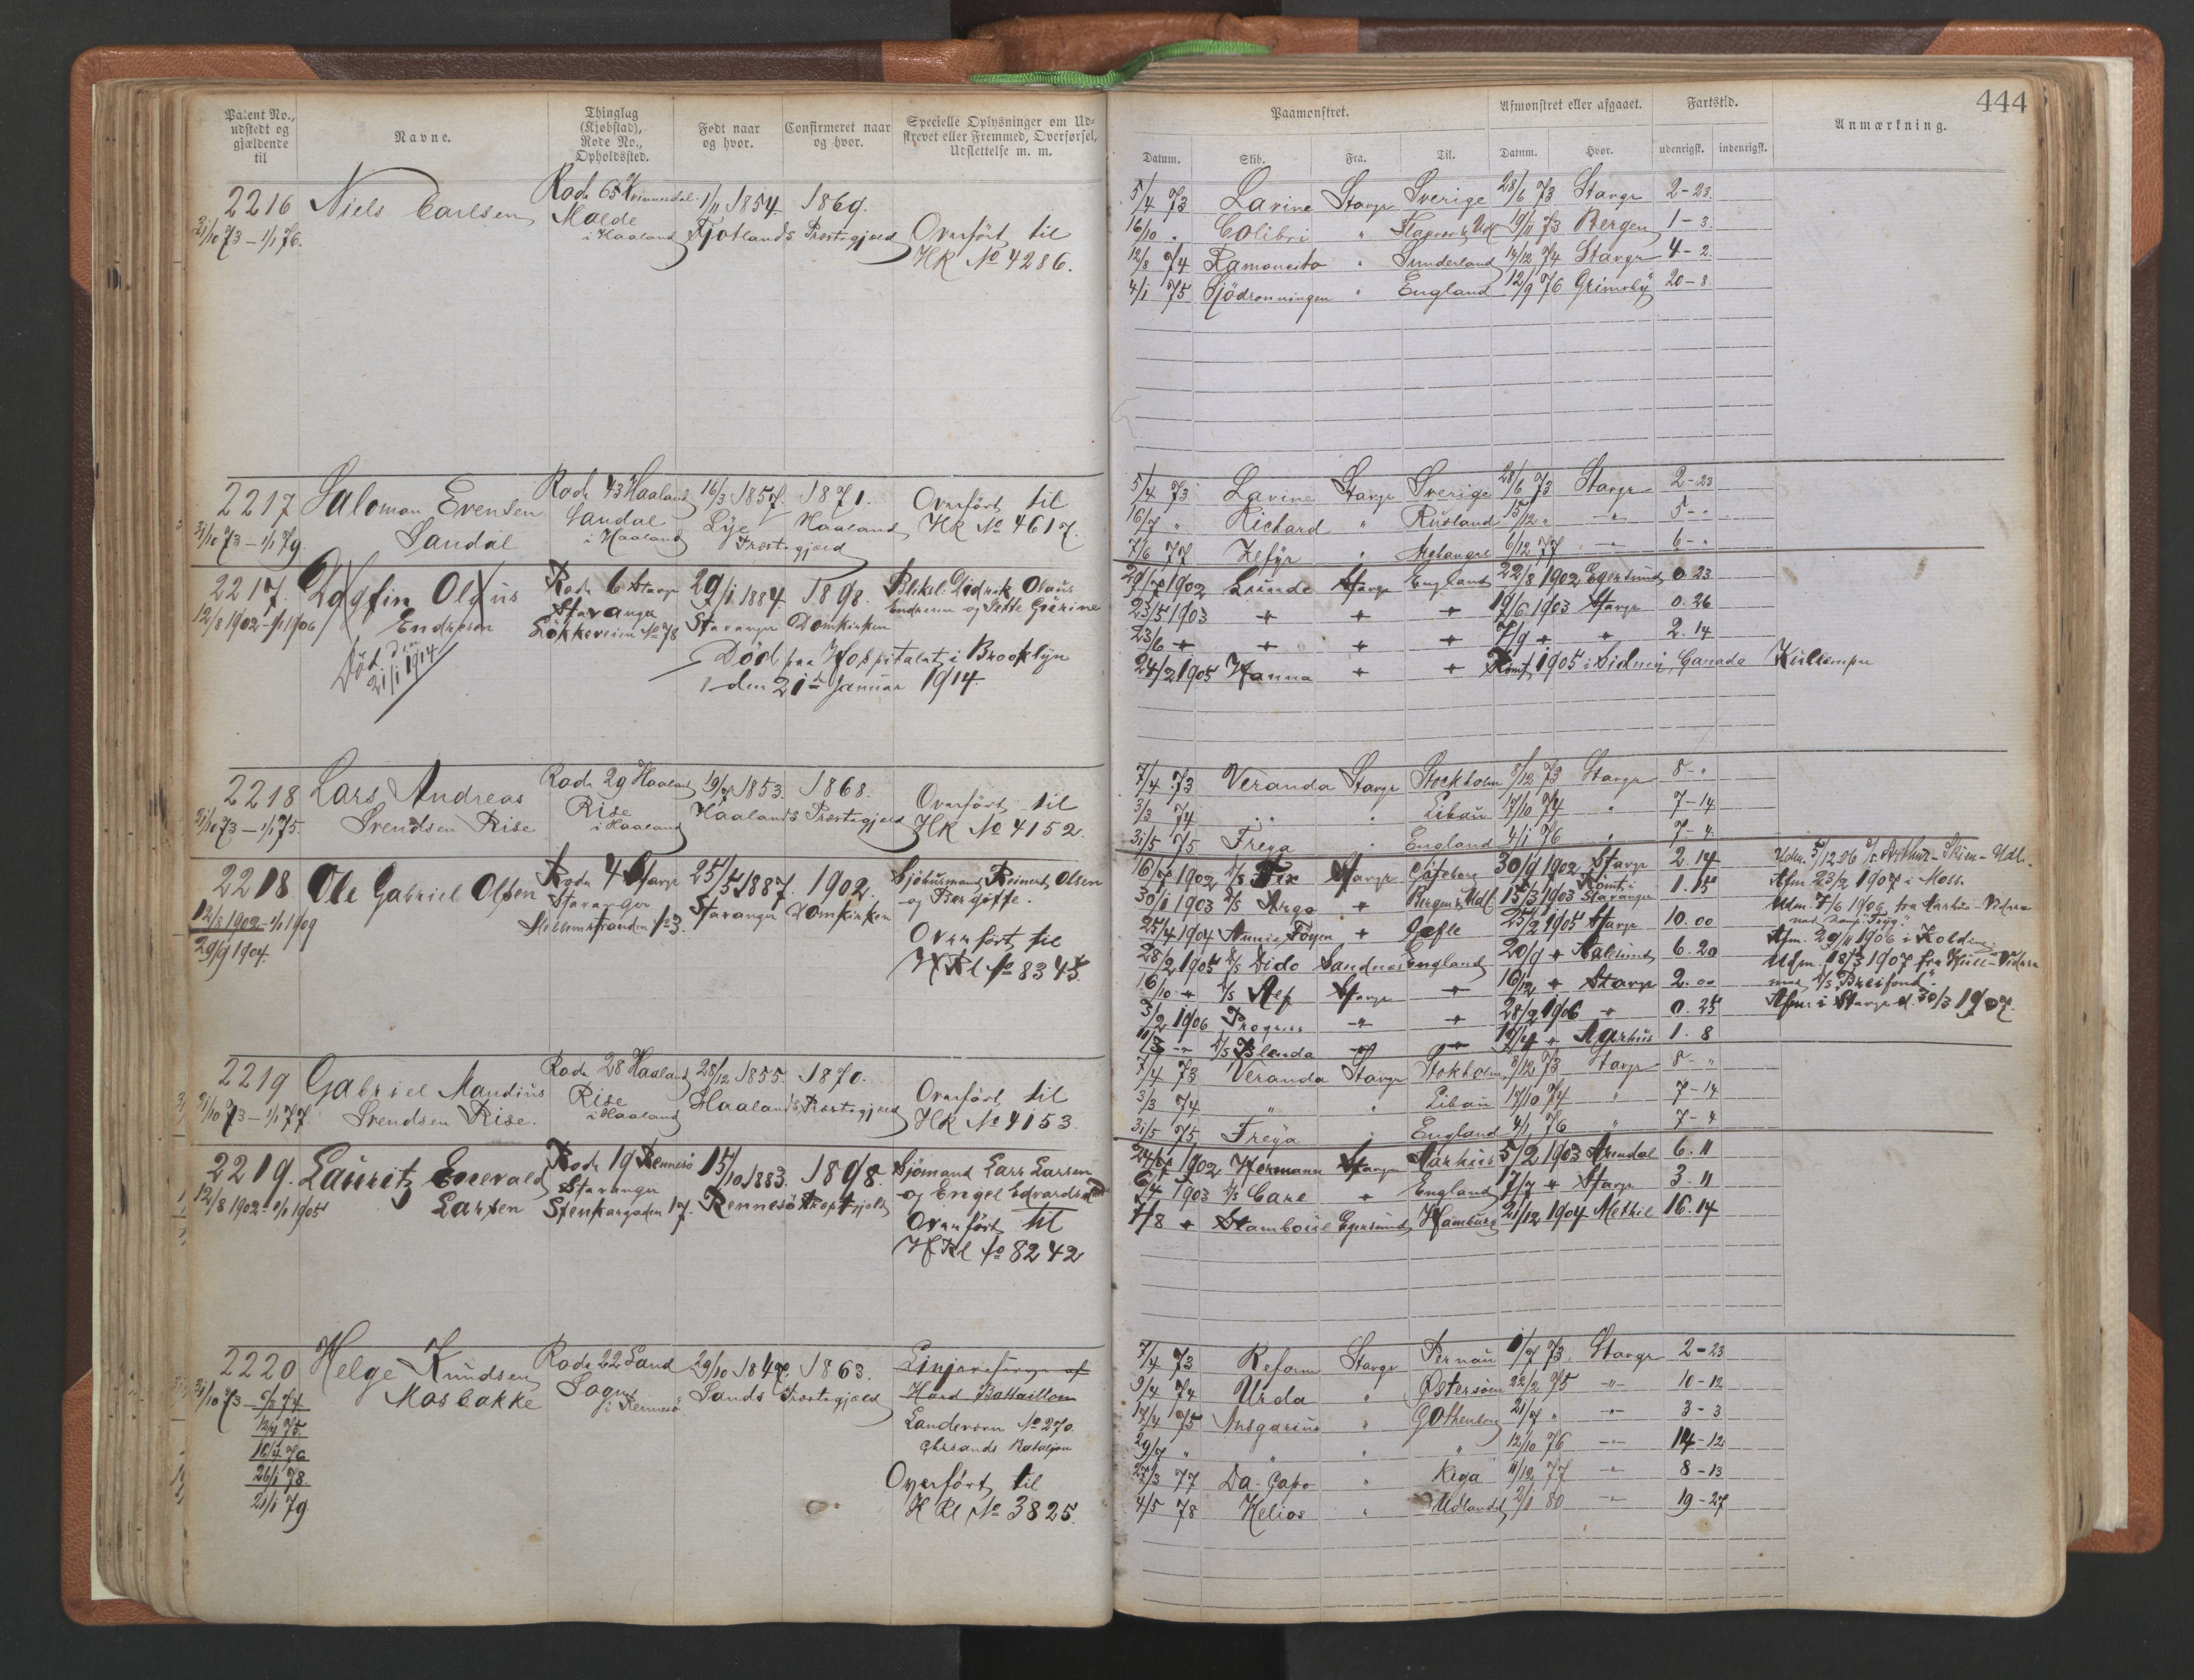 444
Patent No., udstedt og gjældende til
Navne.
Thinglag (Kjøbstad), Rode No., Opholdssted.
Født naar og hvor.
Confirmeret naar og hvor.
Specielle Oplysninger om Udskrevet eller Fremmed, Overførsel, Udslettelse m. m.
Paamønstret.
Afmønstret eller afgaaet.
Fartstid.
Anmærkning.
Datum. Skib. Fra. Til. Datum. Hvor. udenrigsk. indenrigsk.
2216 Niels Carlsen Rode 65 1/11 1854 1869.
31/10 73 – 1/1 76. Malde i Haaland Fjotlands Præstegjæld Overført til
HR No 4286.
5/4 73 Lavine Stavgr Sverige 28/6 73 Stavgr 2-23.
16/10 " Colibri " 19/11 73 Bergen 1-3.
12/8 74 Ramoncito " Sunderland 14/12 74 Stavgr 4-2.
4/1 75 Sjødronningen " England 12/9 76 Grimsby 20-8.
2217 Salomon Evensen Rode 43 Haaland 16/3 1857. 1871. Overført til
31/10 73 – 1/1 79. Sandal Sandal i Haaland Lye Præstegjæld Haaland HR No 4617.
5/4 73 Lavine Stavgr Sverige 28/6 73 Stavgr 2-23
16/7 " Richard " Rusland 15/12 " – 5-"
7/6 77 Zefyr " Archangel 6/12 77 – 6-"
2217. Dagfin Olaus Rode 6 Stavgr 29/1 1884 1898. Blikksl. Didrik Olaus
12/8 1902 – 1/1 1906 Endresen Stavanger Løkkeveien No 78 Stavanger Domkirken Endresen og Jette Gurine
Død den 21/1 1914
Død paa Hospitalet i Brooklyn
den 21de Januar 1914.
29/7 1902 Lunde Stavgr England 22/8 1902 Egersund 0.23
23/5 1903 + + + 19/6 1903 Stavgr 0.26
23/6 + + + + 7/9 + + 2.14
24/2 1905 Hanna + + Rømt 1905 i Sidney, Canada
2218 Lars Andreas Rode 29 Haaland 19/7 1853. 1868. Overført til
31/10 73 – 1/1 75. Svendsen Rise Rise i Haaland Haalands Præstegjæld HR No 4152.
7/4 73 Veranda Stavgr Stockholm 8/12 73 Stavgr 8-"
3/3 74 " " Libau 17/10 74 " 7-14
31/5 75 Freya " England 4/1 76 " 7-4.
2218 Ole Gabriel Olsen Rode 4 Stavgr 25/5 1887. 1902. Sjøbusmand Reinert Olsen
12/8 1902 – 1/1 1909 Stavanger No 3. Stavanger Domkirken og Bergitte.
29/9 1904.
Overført til
HRl No 8345
16/7 1902 D/S Fix Stavgr Gøteborg 30/9 1902 Stavgr 2.14
30/1 1903 D/S Argo + Bergen & Udl 15/3 1903 Rømt i Stavanger 1.15
25/4 1904 Annie Føyen + Gefle 25/2 1905 Stavgr 10.00
28/2 1905 D/S Dido Sandnes England 20/9 + Aalesund 6.20
16/10 + D/S Alf Stavgr + 16/12 + Stavgr 2.00
3/2 1906 Progress – + 28/2 1906 + 0.25
11/3 – D/S Blenda + + 19/4 + Aarhus 1.8
Udm. 5/12 06 D/S Arthur – Skien – Udl.
Afm. 23/2 1907 i Moss.
Udm. 7/6 1906 fra Aarhus – Videre
med Skonn. "Tryg".
Afm. 29/11 1906 i Kolding.
Udm. 18/3 1907 fra Hull – Videre
med D/S "Breifond".
Afm. i Stavgr d. 30/3 1907.
2219 Gabriel Maudius Rode 28 Haaland 28/12 1855. 1870. Overført til
31/10 73 – 1/1 77. Svendsen Rise. Rise i Haaland Haalands Præstegjæld HR No 4153.
7/4 73 Veranda Stavgr Stokholm 8/12 73 Stavgr 8-"
3/3 74 " " Libau 17/10 74 " 7-14
31/5 75 Freya " England 4/1 76 " 7-4
2219. Lauritz Enevald Rode 19 Rennesø 15/10 1883. 1898. Sjømand Lars Larsen
12/8 1902 – 1/1 1905 Larsen Stavanger Stenkargaden 17. Rennesø Præstegjeld og Engel Edvardsd.
Overført til
HRl No 8242
24/7 1902 Hermann Stavgr Aarhus 5/2 1903 Arendal 6.11
6/4 1903 D/S Care + England 17/7 + Stavgr 3.11
7/8 + Stamboul Egersund Hamburg 21/12 1904 Methil 16.14
2220 Helge Knudsen Rode 22 Sand 29/10 1847. 1863. Linjereserve af
31/10 73 – Mosbakke i Rennesø Sands Præstegjæld Hard Battaillon
12/4 75
16/4 76
26/1 78
21/1 79
Landeværn No 270.
Chrsands Bataljon
Overført til
H Rl No 3825.
7/4 73 Reform Stavgr Pernau 1/7 73. Stavgr 2-23
9/4 74 Urda " Østersøen 22/2 75 – 10-12
17/4 75 Ansgarius " Gothenborg 21/7 " – 3-3
29/7 " " " " 12/10 76 – 14-12
27/3 77 Da Capo " Riga 11/12 77 – 8-13
4/5 78 Helios " Udlandet 2/1 80 – 19-27